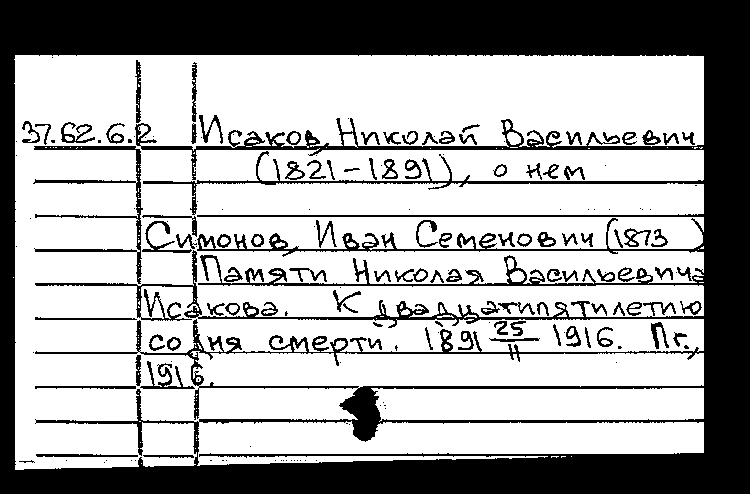 37.62.6.2 Исаков, Николай Васильевич
(1821-1891), о нем
Симонов, Иван Семенович (1873 )
Памяти Николая Васильевича
Исакова. К двадцатипятилетию
со дня смерти. 1891 25/II 1916. Пг.,
1916.